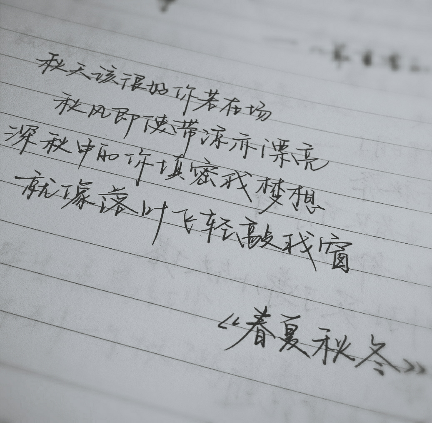 秋天该很好你若在场
秋风即使带凉亦漂亮
深秋中的你填密我梦想
就像落叶飞轻敲我窗
《春夏秋冬》